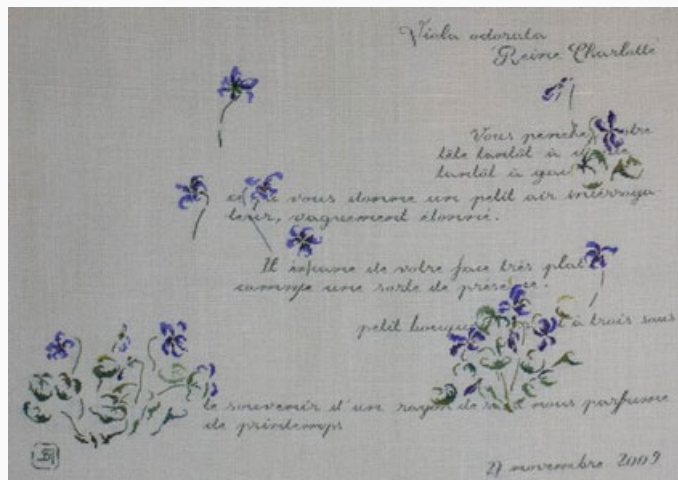 Viola odorata
'Reine Charlotte'
Vous penchez votre
tête tantôt à
tantôt à gau
ce qui vous donne un petit air interroga-
teur, vaguement étonné.
Il émane de votre face très plate
comme une sorte de présence.
petit bouquet à trois sous
le souvenir d'un rayon de soleil nous parfume
de printemps
27 novembre 2009